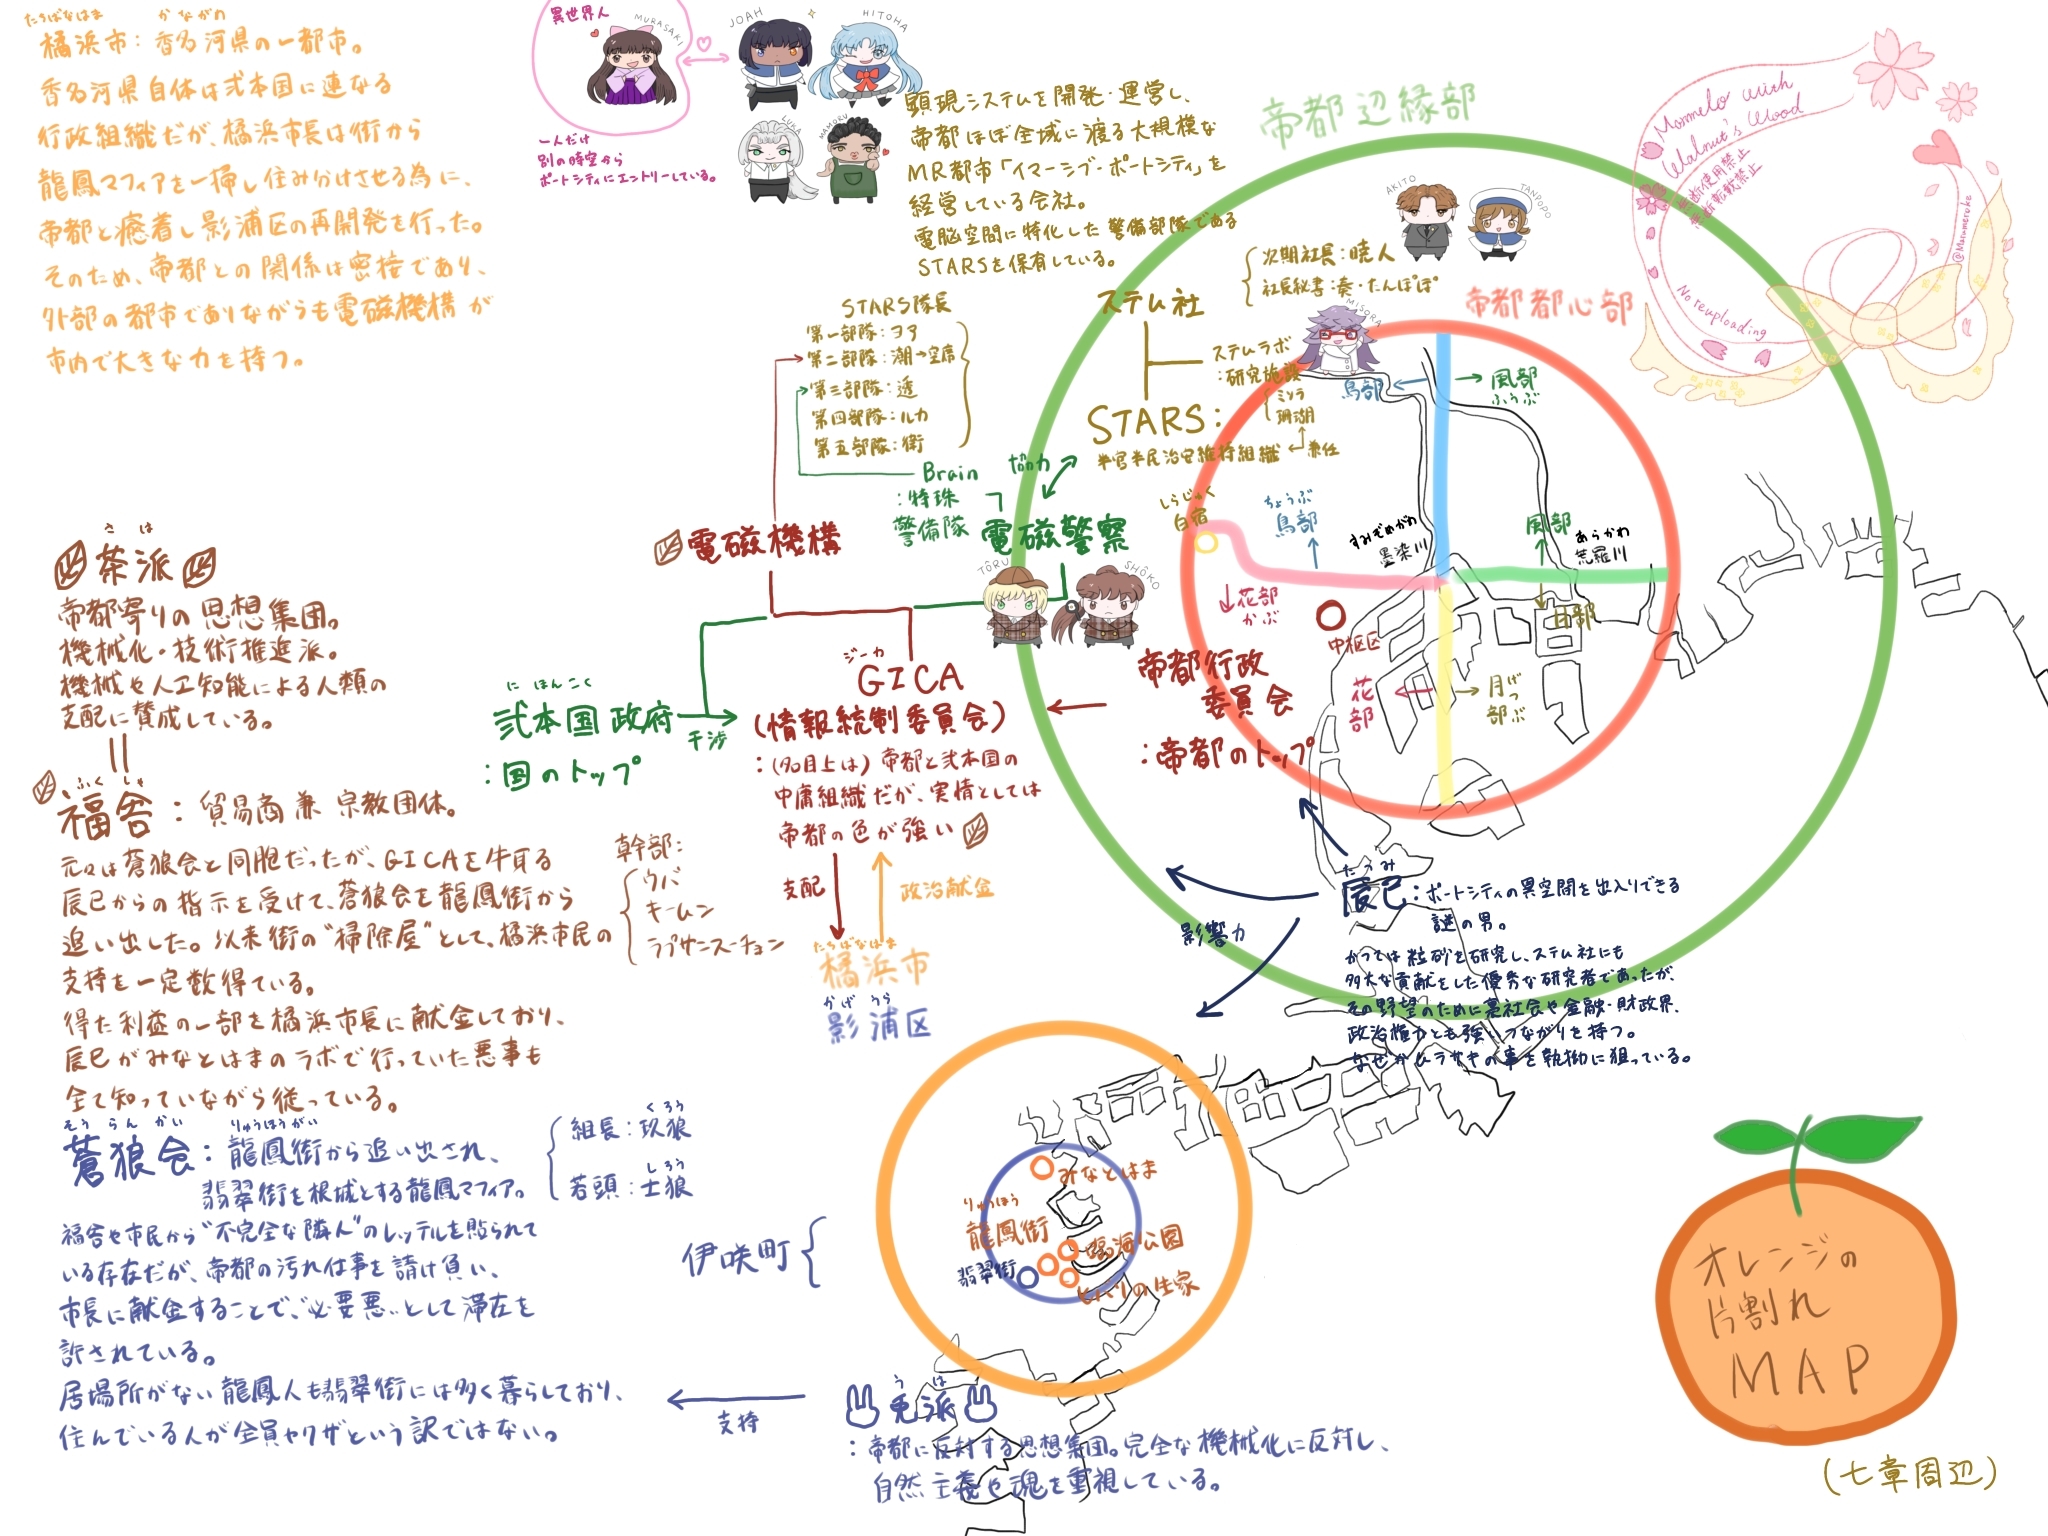 たちばなはま かながわ
橘浜市：香名河県の一都市。
香名河県自体は弐本国に連なる
行政組織だが、橘浜市長は街から
龍鳳マフィアを一掃し住み分けさせる為に、
帝都と癒着し影浦区の再開発を行った。
そのため、帝都との関係は密接であり、
外部の都市でありながらも電磁機構が
市内で大きな力を持つ。
異世界人
MURASAKI
一人だけ
別の時空から
ポートシティにエントリーしている。
JOAH
HITOHA
LUKA
MAMORU
顕現システムを開発・運営し、
帝都ほぼ全域に渡る大規模な
MR都市「イマーシブ・ポートシティ」を
経営している会社。
電脳空間に特化した警備部隊である
STARSを保有している。
ステム社
次期社長：暁人
社長秘書：奏・たんぽぽ
AKITO
TANPOPO
ステムラボ
：研究施設
ミソラ
珊瑚
兼任
MISORA
STARS：
半官半民治安維持組織
STARS隊長
第一部隊：ヨア
第二部隊：潮→空席
第三部隊：遥
第四部隊：ルカ
第五部隊：衛
Brain
：特殊
警備隊
協力
電磁警察
TÔRU
SHÔKO
電磁機構
ジーカ
GICA
（情報統制委員会）
：（名目上は）帝都と弐本国の
中庸組織だが、実情としては
帝都の色が強い
にほんこく
弐本国政府
：国のトップ
干渉
帝都行政
委員会
：帝都のトップ
支配
政治献金
たちばなはま
橘浜市
かげうら
影浦区
帝都辺縁部
帝都都心部
鳥部
風部
ふうぶ
しらじゅく
白宿
ちょうぶ
鳥部
すみぞめがわ
墨染川
風部
あらかわ
荒羅川
花部
かぶ
中枢区
月部
花部
月部
げつぶ
たつみ
辰巳：ポートシティの異空間を出入りできる
謎の男。
かつては粒砂を研究し、ステム社にも
多大な貢献をした優秀な研究者であったが、
その野望のために裏社会や金融・財政界、
政治権力とも強いつながりを持つ。
なぜかムラサキの事を執拗に狙っている。
影響力
さは
茶派
帝都寄りの思想集団。
機械化・技術推進派。
機械や人工知能による人類の
支配に賛成している。
ふくしゃ
福舎：貿易商兼宗教団体。
元々は蒼狼会と同胞だったが、GICAを牛耳る
辰巳からの指示を受けて、蒼狼会を龍鳳街から
追い出した。以来街の“掃除屋”として、橘浜市民の
支持を一定数得ている。
得た利益の一部を橘浜市長に献金しており、
辰巳がみなとはまのラボで行っていた悪事も
全て知っていながら従っている。
幹部：
ウバ
キームン
ラプサンスーチョン
そうらんかい りゅうほうがい
蒼狼会：龍鳳街から追い出され、
翡翠街を根城とする龍鳳マフィア。
くろう
組長：玖狼
しろう
若頭：士狼
福舎や市民から“不完全な隣人”のレッテルを貼られて
いる存在だが、帝都の汚れ仕事を請け負い、
市長に献金することで、“必要悪”として滞在を
許されている。
居場所がない龍鳳人も翡翠街には多く暮らしており、
住んでいる人が全員ヤクザという訳ではない。
伊咲町
みなとはま
りゅうほう
龍鳳街
臨海公園
翡翠街
ヒバリの生家
支持
うは
兎派
：帝都に反対する思想集団。完全な機械化に反対し、
自然主義や魂を重視している。
オレンジの
片割れ
MAP
（七章周辺）
Marmelo with
Walnut's Wood
無断使用禁止
無断転載禁止
No reuploading